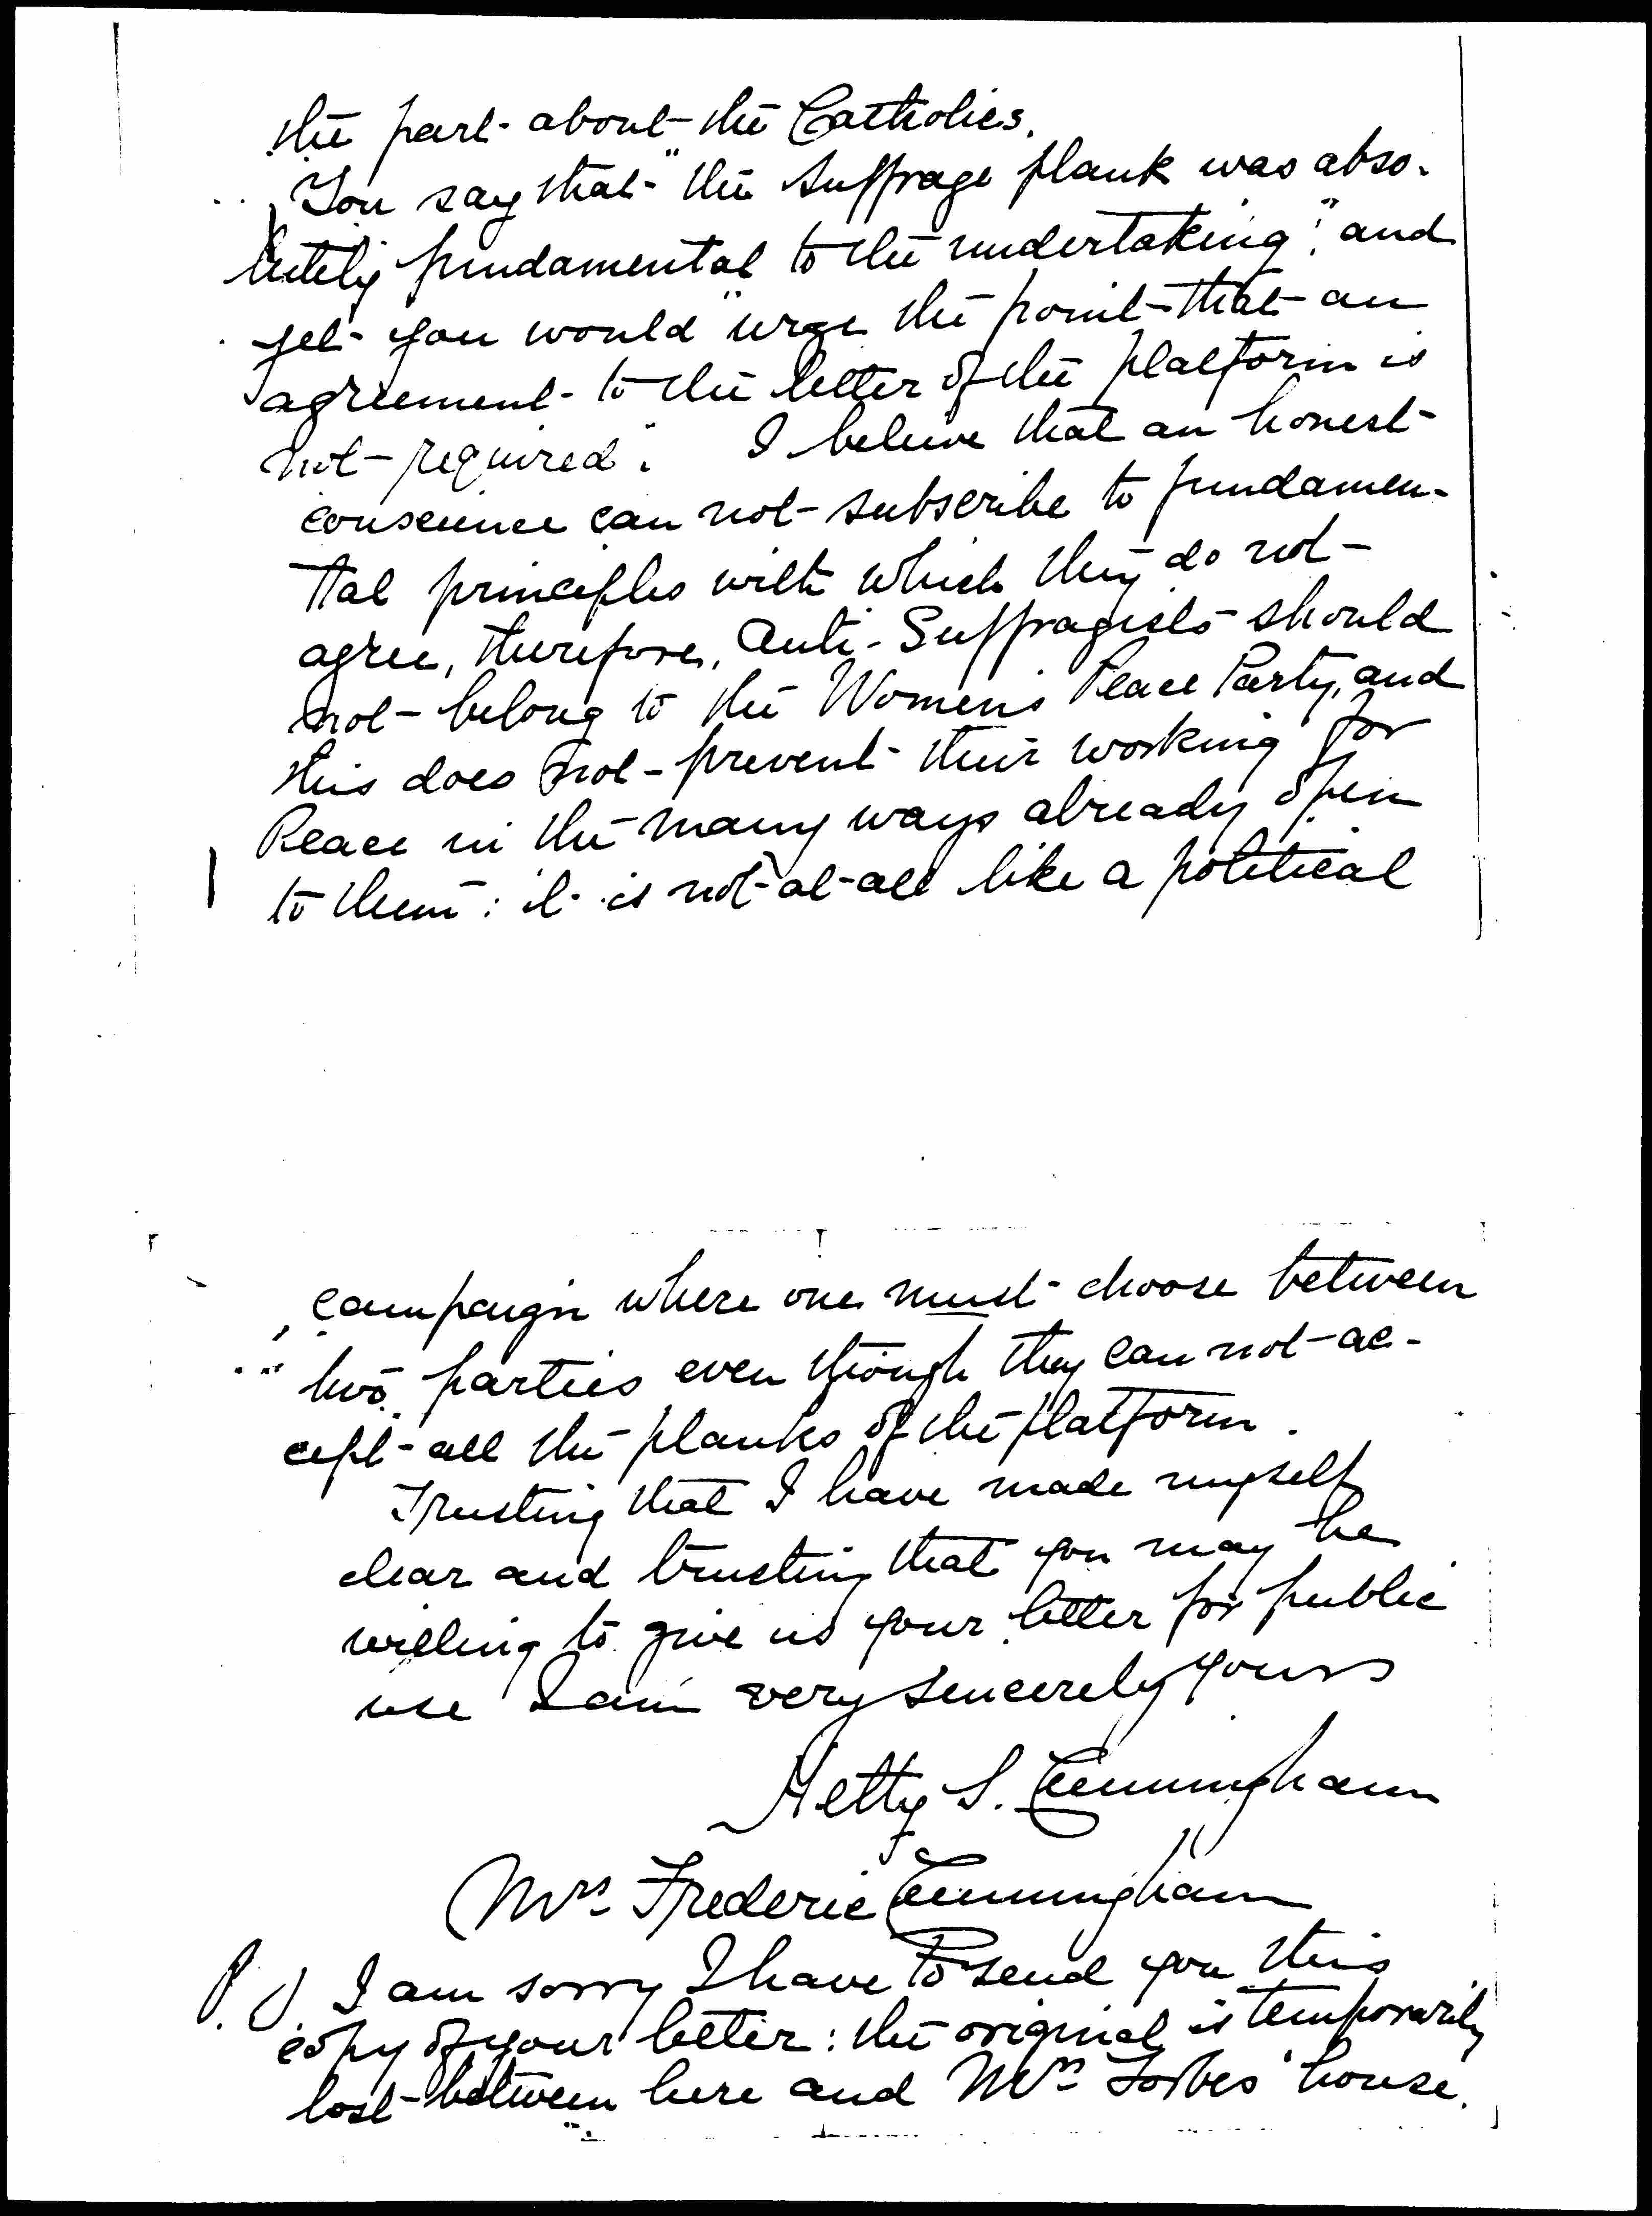 the part about the Catholics.
You say that "the suffrage plank was abso-
lutely fundamental to the undertaking", and
yet you would "urge the point that an
agreement to the letter of the platform is
not required". I believe that an honest
conscience can not subscribe to fundamen-
tal principles with which they do not
agree, therefore, Anti-Suffragists should
not belong to the Women's Peace Party, and
this does not prevent their working for
Peace in the many ways already open
to them: it is not at all like a political
campaign where one must choose between
two parties even though they can not ac-
cept all the planks of the platform.
Trusting that I have made myself
clear and trusting that you may be
willing to give us your letter for public
use I am very sincerely yours
Hetty S. Cunningham
(Mrs. Frederic Cunningham
P.S. I am sorry I have to send you this
copy of your letter: the original is temporarily
lost between here and Mrs. Forbes' house.